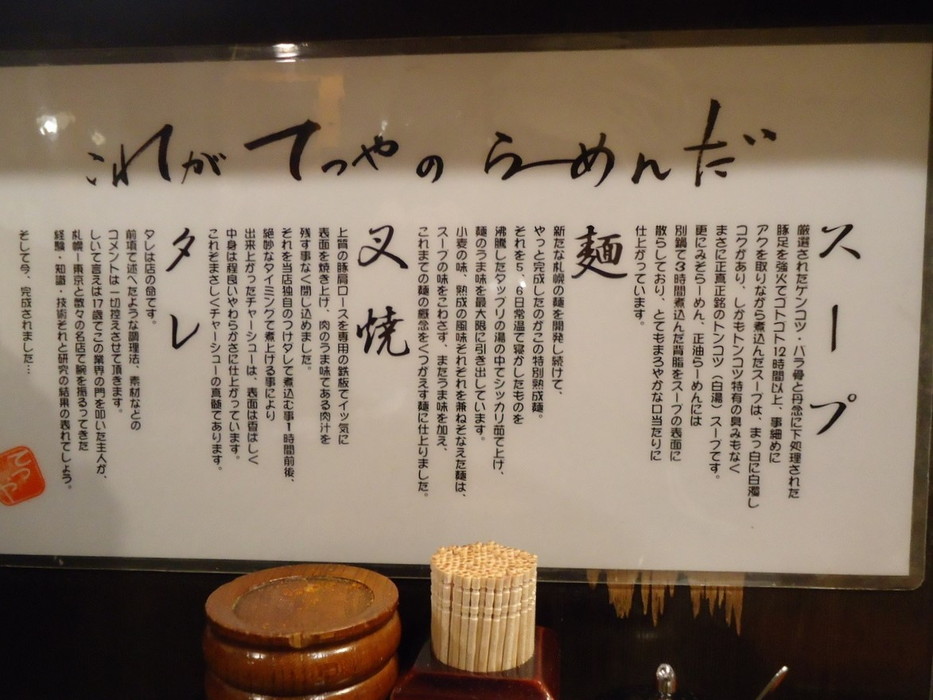 これがてつやのらーめんだ
スープ
厳選されたゲンコツ・バラ骨と丹念に下処理された
豚足を強火でコトコト12時間以上、事細めに
アクを取りながら煮込んだスープは、まっ白に白濁し
コクがあり、しかもトンコツ特有の臭みもなく
まさに正真正銘のトンコツ（白湯）スープです。
更にみそらーめん、正油らーめんには
別鍋で3時間煮込んだ背脂をスープの表面に
散らしており、とてもまろやかな口当たりに
仕上がっています。
麺
新たな札幌の麺を開発し続けて、
やっと完成したのがこの特別熟成麺。
それを5、6日常温で寝かしたものを
沸騰したタップリの湯の中でシッカリ茹で上げ、
麺のうま味を最大限に引き出しています。
小麦の味、熟成の風味それぞれを兼ねそなえた麺は、
スープの味をこわさず、またうま味を加え、
これまでの麺の概念をくつがえす麺に仕上りました。
叉焼
上質の豚肩ロースを専用の鉄板でイッ気に
表面を焼き上げ、肉のうま味である肉汁を
残す事なく閉じ込めました。
それを当店独自のつけダレで煮込む事1時間前後、
絶妙なタイミングで煮上げる事により
出来上がったチャーシューは、表面は香ばしく
中身は程良いやわらかさに仕上がっています。
これぞまさしくチャーシューの真髄であります。
タレ
タレは店の命です。
前項で述べたような調理法、素材などの
コメントは一切控えさせて頂きます。
しいて言えば17歳でこの業界の門を叩いた主人が、
札幌ー東京と数々の名店で腕を振るってきた
経験・知識・技術それと研究の結果の表れでしょう。
そして今、完成されました…
てつや